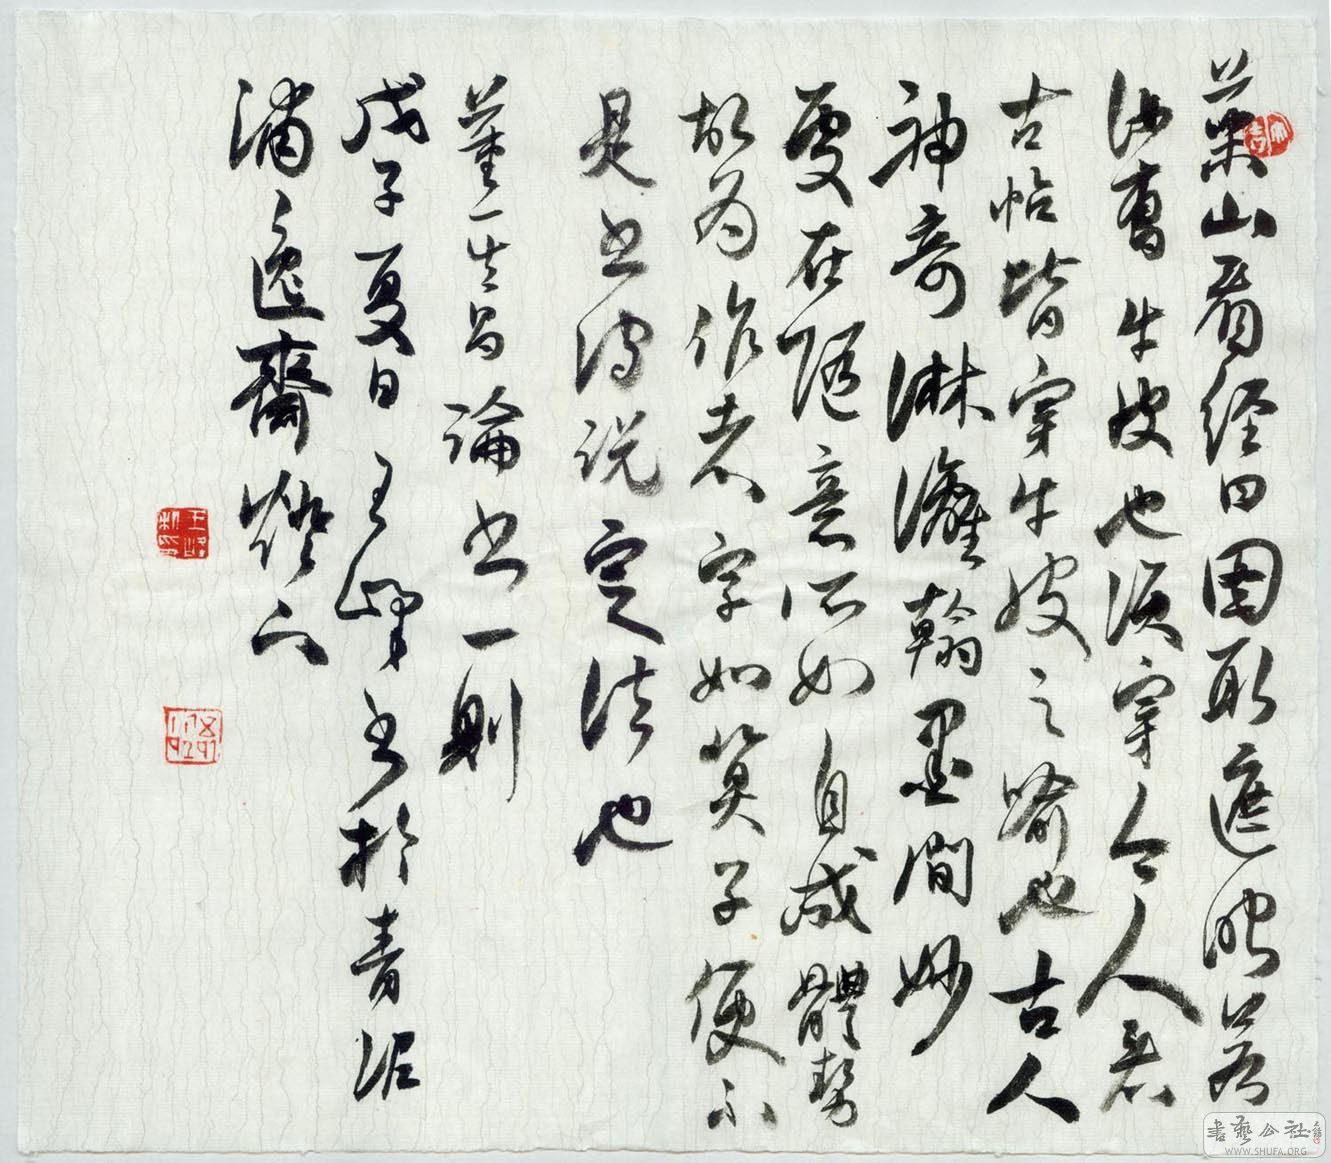 藥山看經曰图取遮眼若
汝曹牛皮也須穿今人看
古帖皆穿牛皮之喻也古人
神奇淋漓翰墨間妙
處在隨意所如自成體勢
故為作者字如算子便不
是書謂說定法也
董其昌論書一則
戊子夏日王峰書於青泥
浦逸齋燈下
書藝公社
WWW.SHUFA.ORG